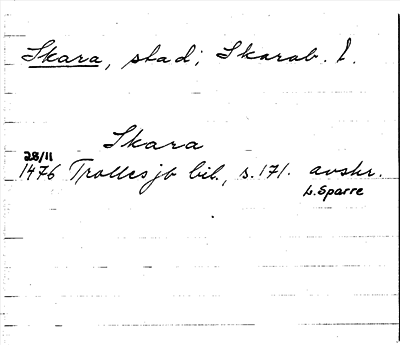 Skara, stad; Skarab. l.
Skara
28/11
1476 Trollesjö bibl., s. 171. avskr.
L. Sparre